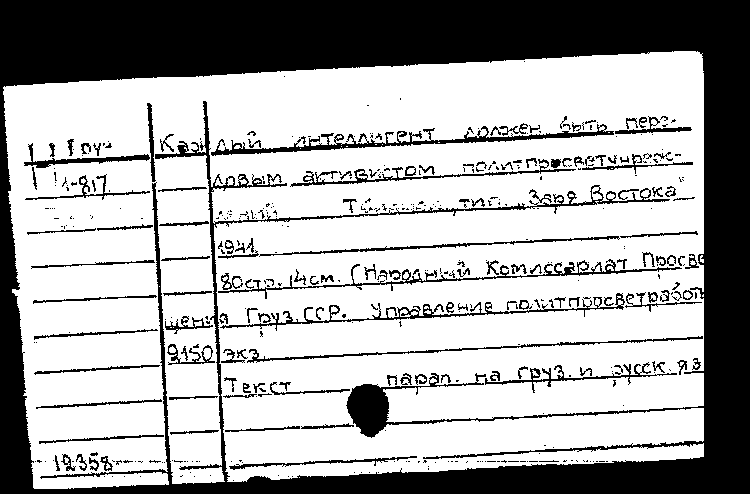 Груз Каждый интеллигент должен быть пере-
1-817 довым активистом политпросветучреж-
дений Тбилиси, тип. "Заря Востока"
1941
80стр. 14см. (Народный Комиссариат Просве
щения Груз.ССР. Управление политпросветработы
2150 экз.
Текст парал. на груз. и русск. яз
12358